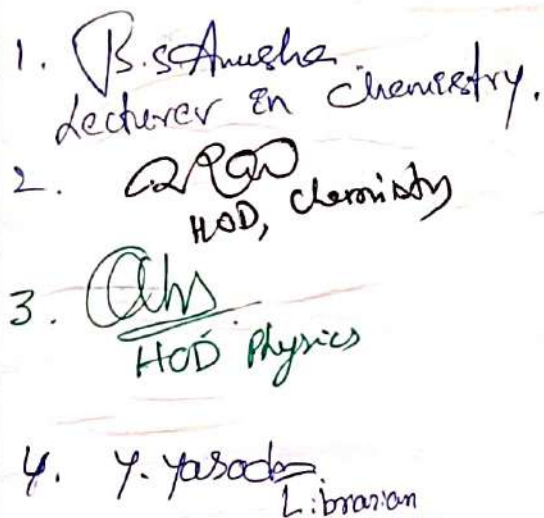 1. B.S Anusha
Lecturer in Chemistry.
2.
HOD, Chemistry
3.
HOD Physics
4. Y. Yasoda
Librarian